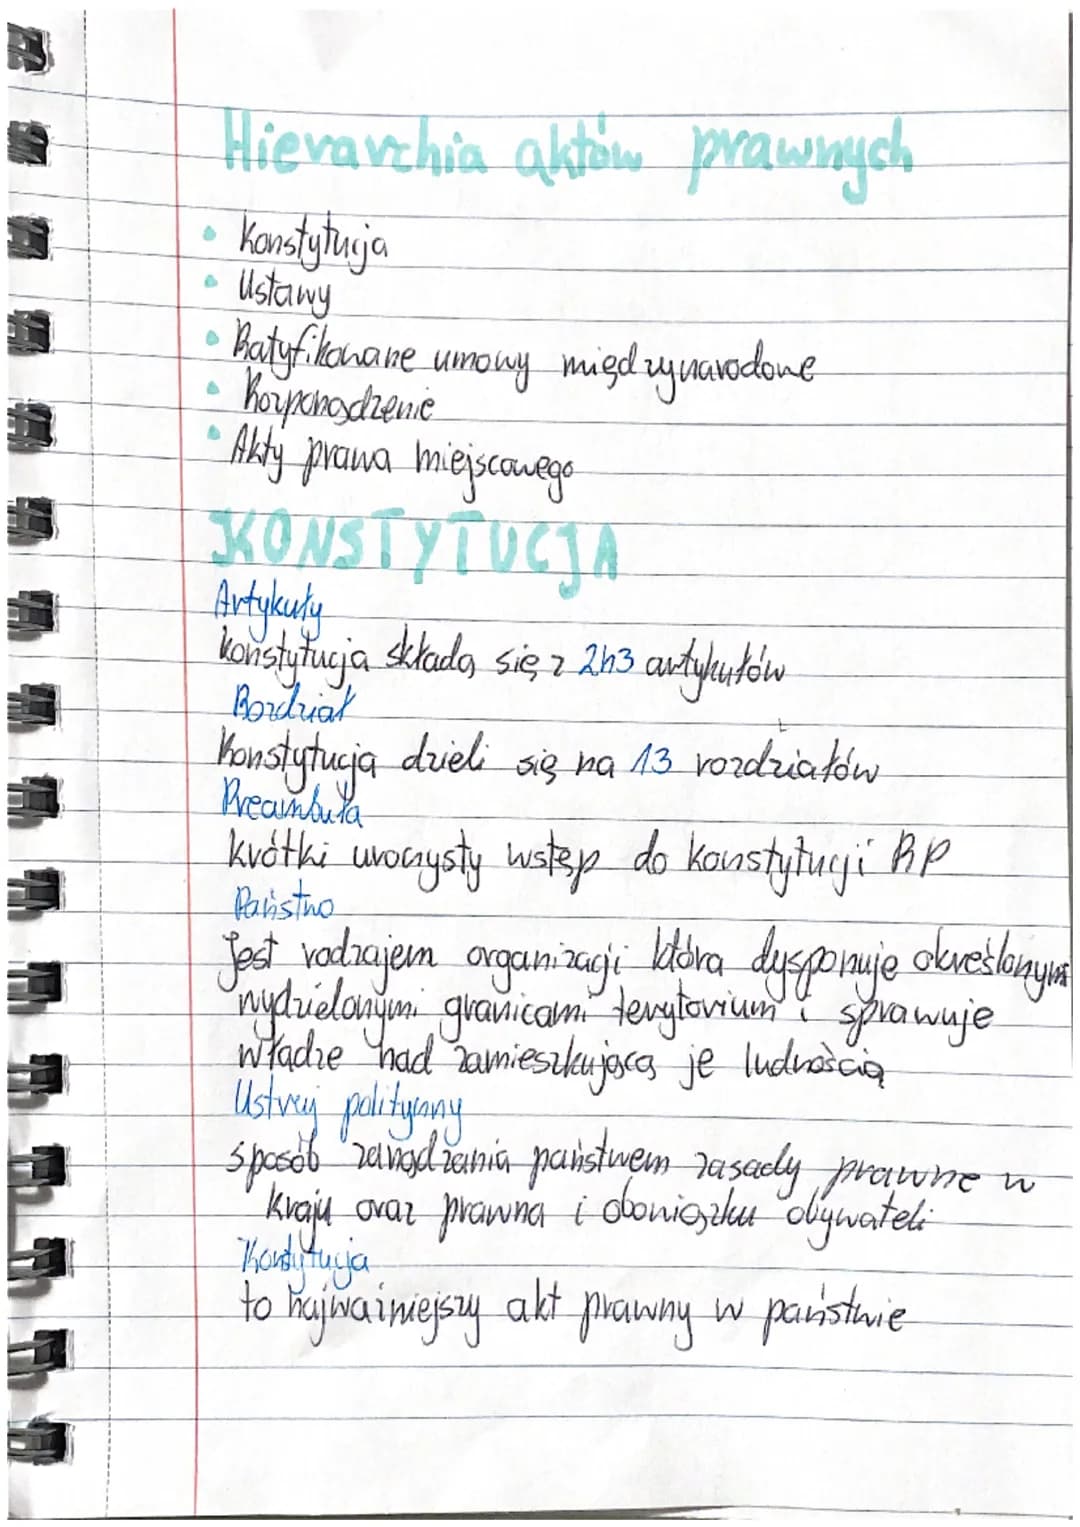 Hierarchia aktów prawnych
• Konstytucja
• Ustawy
• Ratyfikowane umowy międzynarodowe
• Rozporządzenie
• Akty prawa miejscowego
KONSTYTUCJA
Artykuły
konstytucja składa się z 243 artykułów
Rozdział
Konstytucja dzieli się na 13 rozdziałów
Preambuła
krótki uroczysty wstęp do konstytucji RP
Państwo
Jest rodzajem organizacji która dysponuje określonym
wydzielonymi granicami terytorium i sprawuje
władze nad zamieszkującą je ludnością
Ustrój polityczny
sposób zarządzania państwem zasady prawne w
kraju oraz prawna i obowiązku obywateli
Konstytucja
to najważniejszy akt prawny w państwie